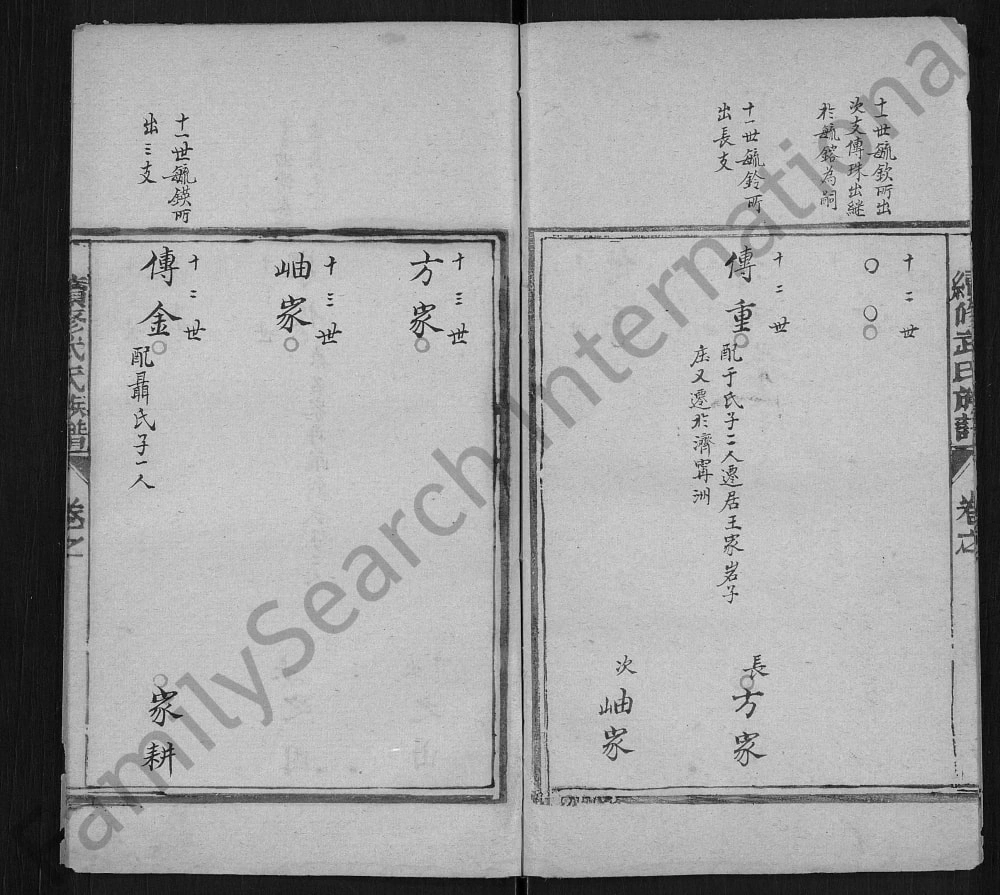 續修武氏族譜 卷之
十一世毓欽所出
次支傳珠出繼
於毓鎔為嗣
十二世
〇〇
十一世毓鈴所
出長支
十二世
傳重
配于氏子二人遷居王家岩子
庄又遷於濟甯洲
長
方家
次
岫家
十三世
方家
十三世
岫家
十一世毓鍈所
出三支
十二世
傳金
配聶氏子一人
家耕
續修武氏族譜
卷之
FamilySearch International